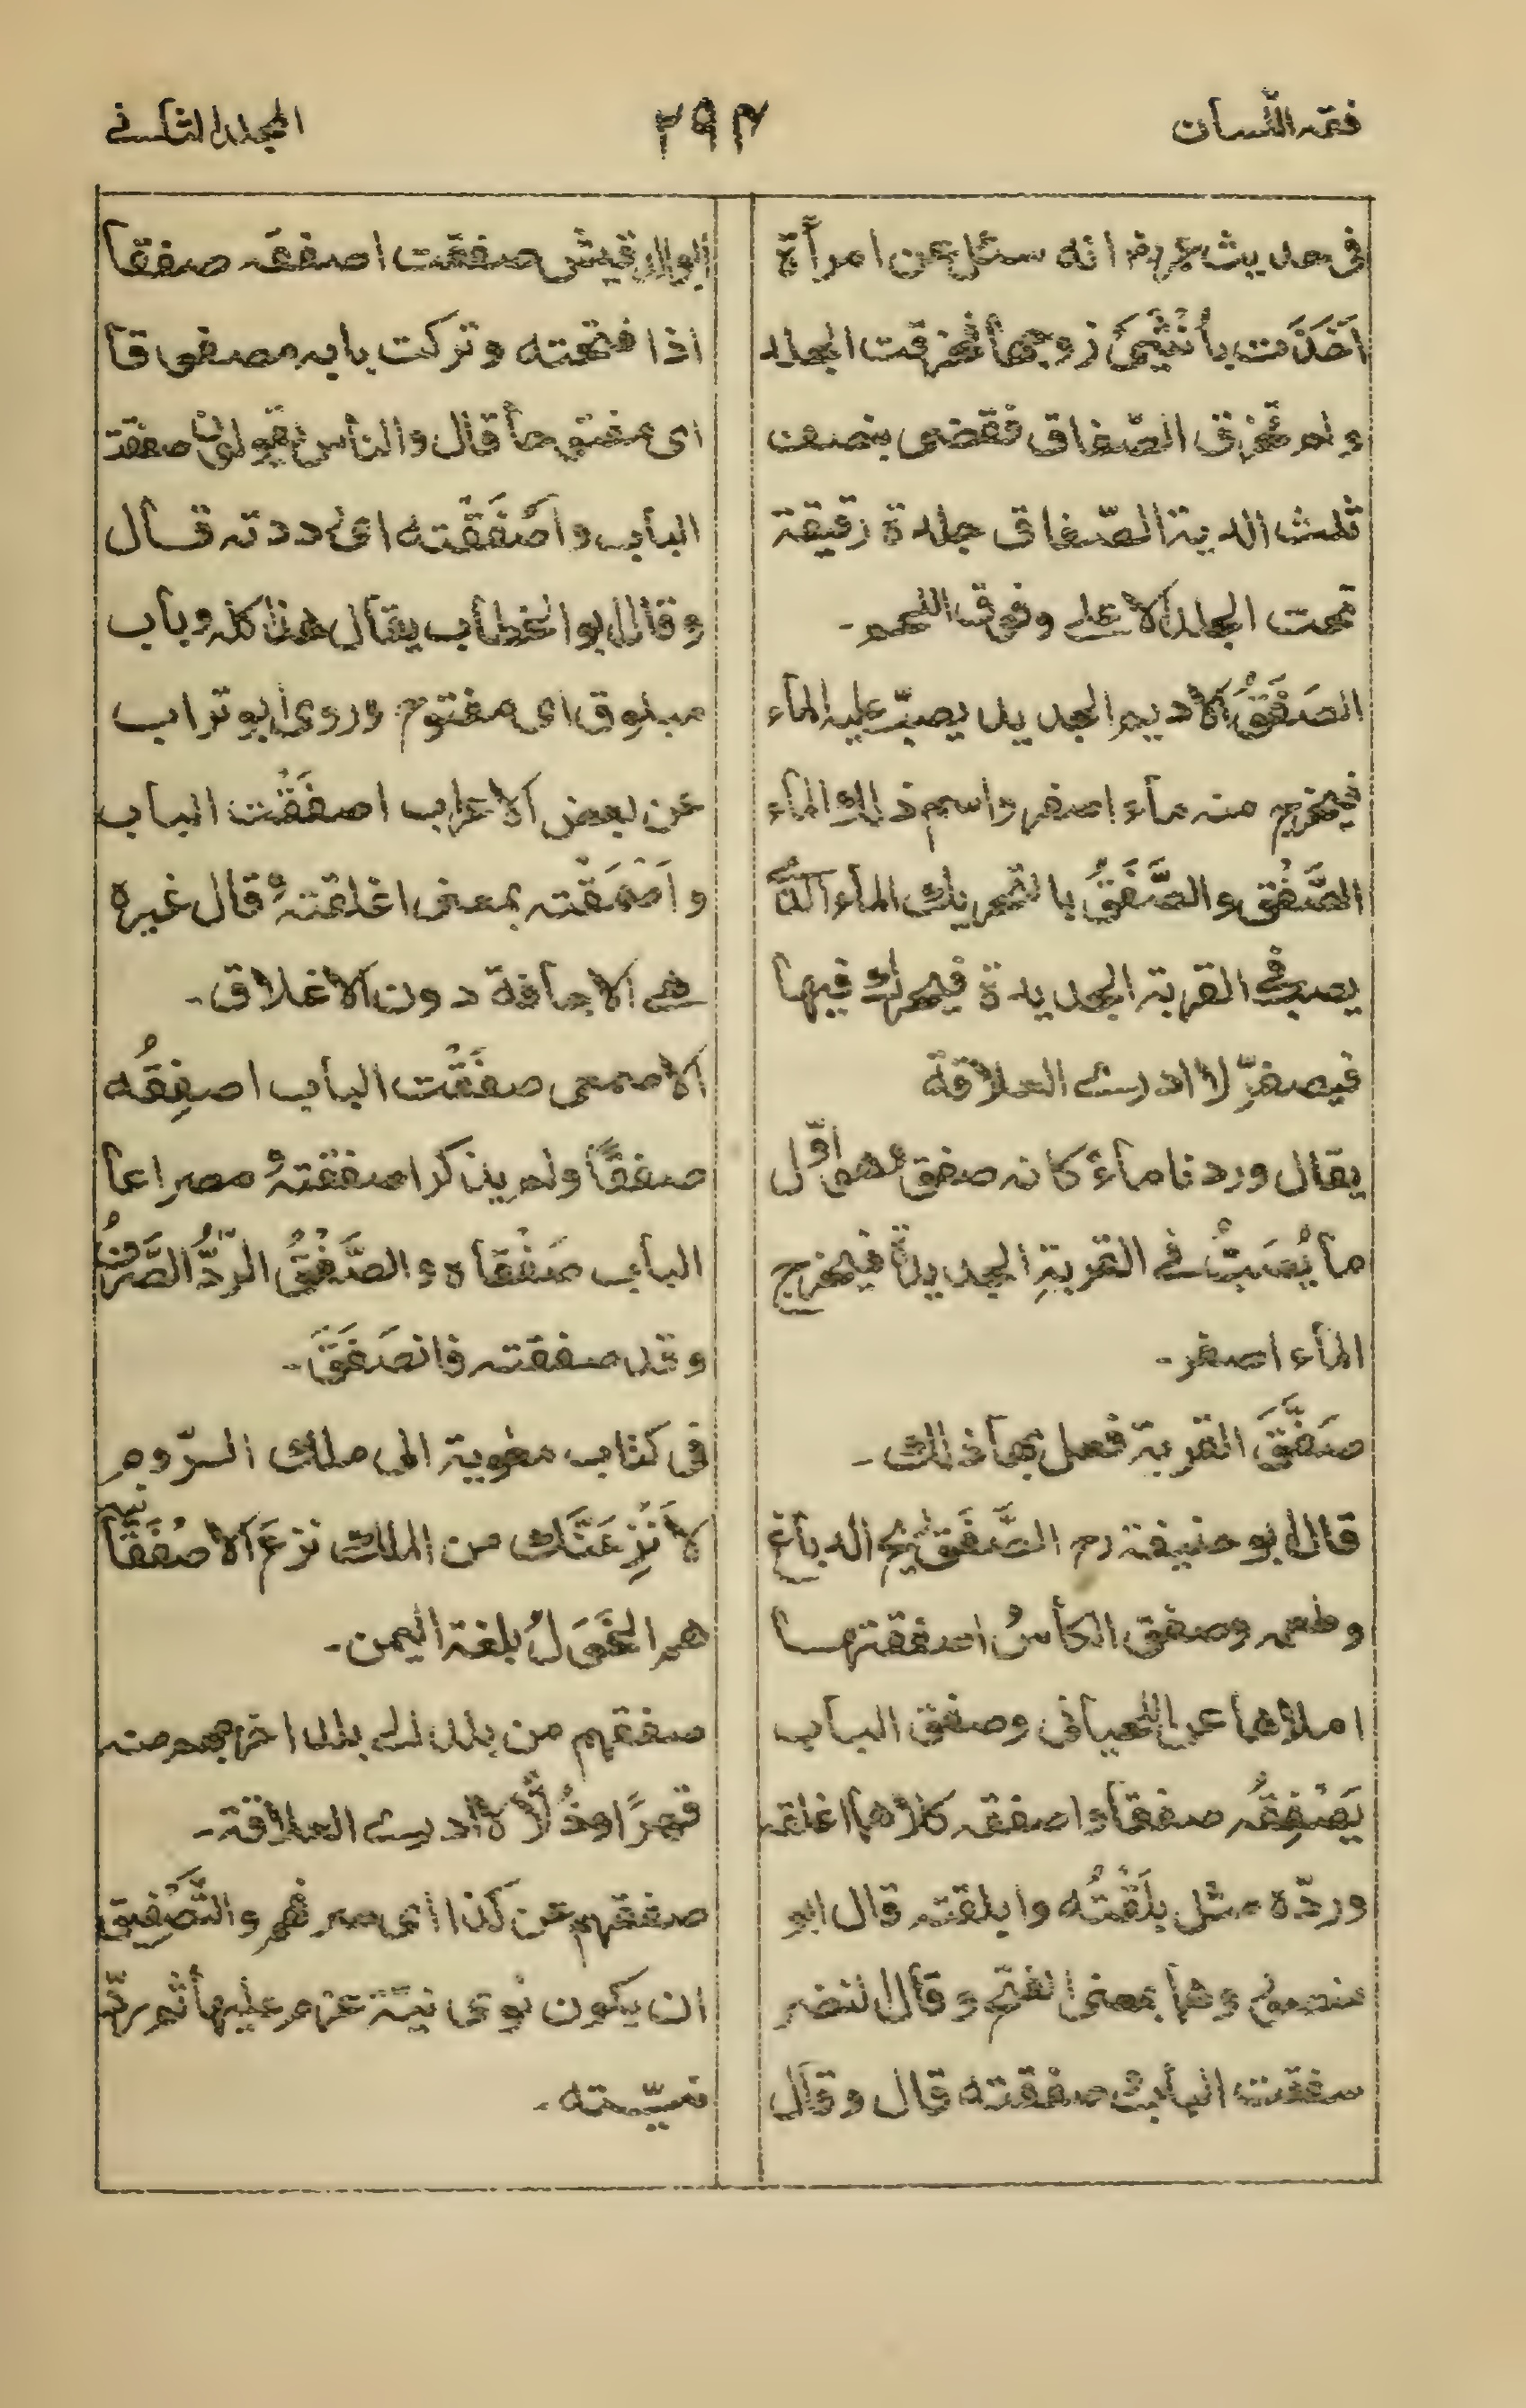 فقه اللّسان
۲۹۴
المجلد الثانی
فی حدیث عمر رض انه سئل عن امرأة
اَخَذَت بأُنْثَیَیْ زوجها فخرقت الجلد
ولم تخرق الصّفاق فقضی بنصف
ثلث الدیة الصّفاق جلدة رقیقة
تحت الجلد الاعلی وفوق اللحم۔
الصَفَقُ الادیم الجدید یصبّ علیه الماء
فیخرج منه ماء اصفر واسم ذلك الماء
الصَّفْق والصَّفَقُ بالتحریك الماء الذی
یصب فی القربة الجدیدة فیحرك فیها
فیصفرّ
یقال وردنا ماءً کانه صفق وهو اوّل
ما یُصَبُّ فی القربةِ الجدیدة فیخرج
الماء اصفر۔
صَفَّقَ القربة فعل بها ذلك۔
قال ابو حنیفة رح الصَّفَق ریح الدباغ
وطعمه وصفق الکأسُ اصفقتها
املأها عن اللحیانی وصفق الباب
یَصْفِقُه صفقا واصفقه کلاهما اغلقه
وردّه مثل بلَقْتُه وابلقته قال ابو
منصور وهما بمعنی الفتح وقال النضر
سفقت الباب صفقته قال وقال
ابو الدقیش صفقت اصفقه صفقا
اذا فتحته وترکت بابه مصفوقا
ای مفتوحا قال والناس یقولون صفقت
الباب واَصْفَقْته ای رددته قال
وقال ابو الخطاب یقال هذا کله وباب
مبلوق ای مفتوح وروی ابو تراب
عن بعض الاعراب اصفَقْت الباب
واَصْمَقْته بمعنی اغلقتهُ قال غیره
هی الاجافة دون الاغلاق۔
الاصمعی صفَقْت الباب اصفِقُه
صفقًا ولم یذکر اصفقتهُ مصراعا
الباب صَفْقاه والصَّفْقُ الردُّ الصَّرْفُ
وقد صفقته فانصَفَقَ۔
فی کتاب معٰویة الی ملك الرّوم
لاَنْزِعَنَّك من الملك نزعَ الاصفَقَانیة
هم الخَوَلُ بلغة الیمن۔
صفقهم من بلد الی بلد اخرجهم منه
قهرًا وذُلًّا
صفقهم عن کذا ای صرفهم والتَّصْفِیق
ان یکون نوی نیّة عزم علیها ثم ردّ
نیّته۔